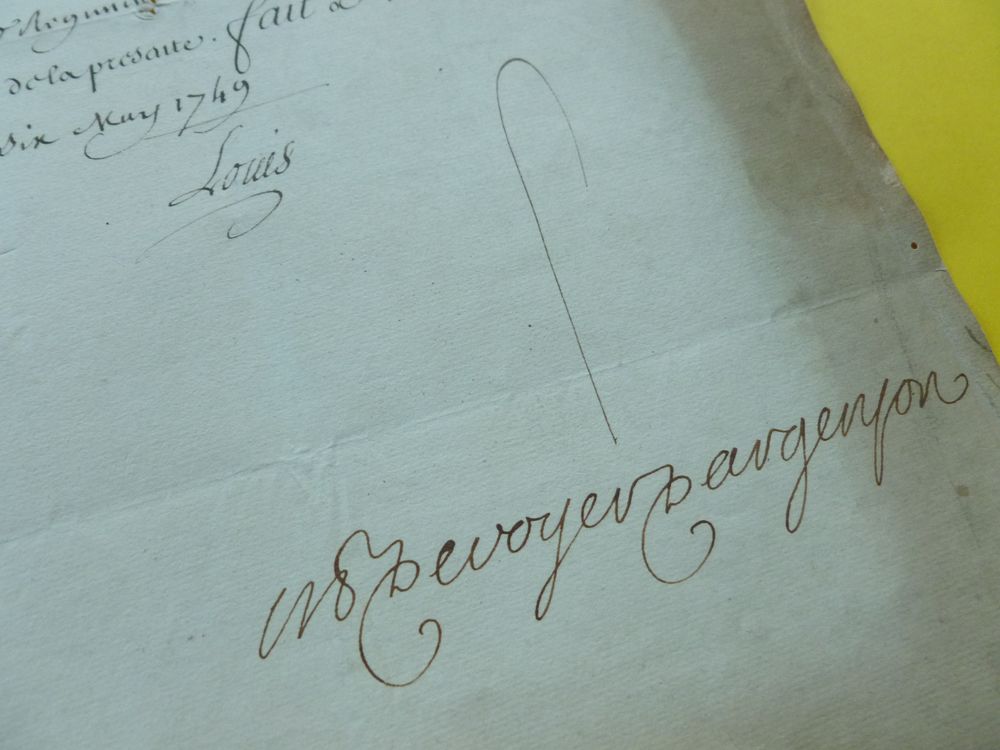 Regimen
de la presante. fait a
six May 1749
Louis
MP Devoyer Dargenson